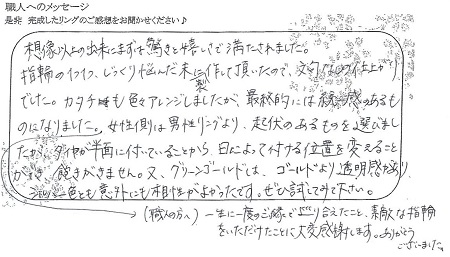 職人へのメッセージ
是非 完成したリングのご感想をお聞かせください♪
想像以上の出来にまずは驚きと嬉しさで満たされました。
指輪の じっくり悩んだ末に製作して頂いたので、文句なしの仕上がり
でした。カタチも色もアレンジしましたが、最終的には統一感のあるも
のになりました。女性側は男性リングより、起伏のあるものを選びまし
たが、ダイヤが半面に付いていることから、日によって付ける位置を変えること
ができ、飽きがきません。又、グリーンゴールドは、ゴールドより透明感があり、
シルバー色とも意外にも相性がよかったです。ぜひ試してみて下さい。
(職人の方へ) 一生に一度のご縁で巡り合えたこと、素敵な指輪
をいただけたことに大変感謝します。ありがとう
ございました。